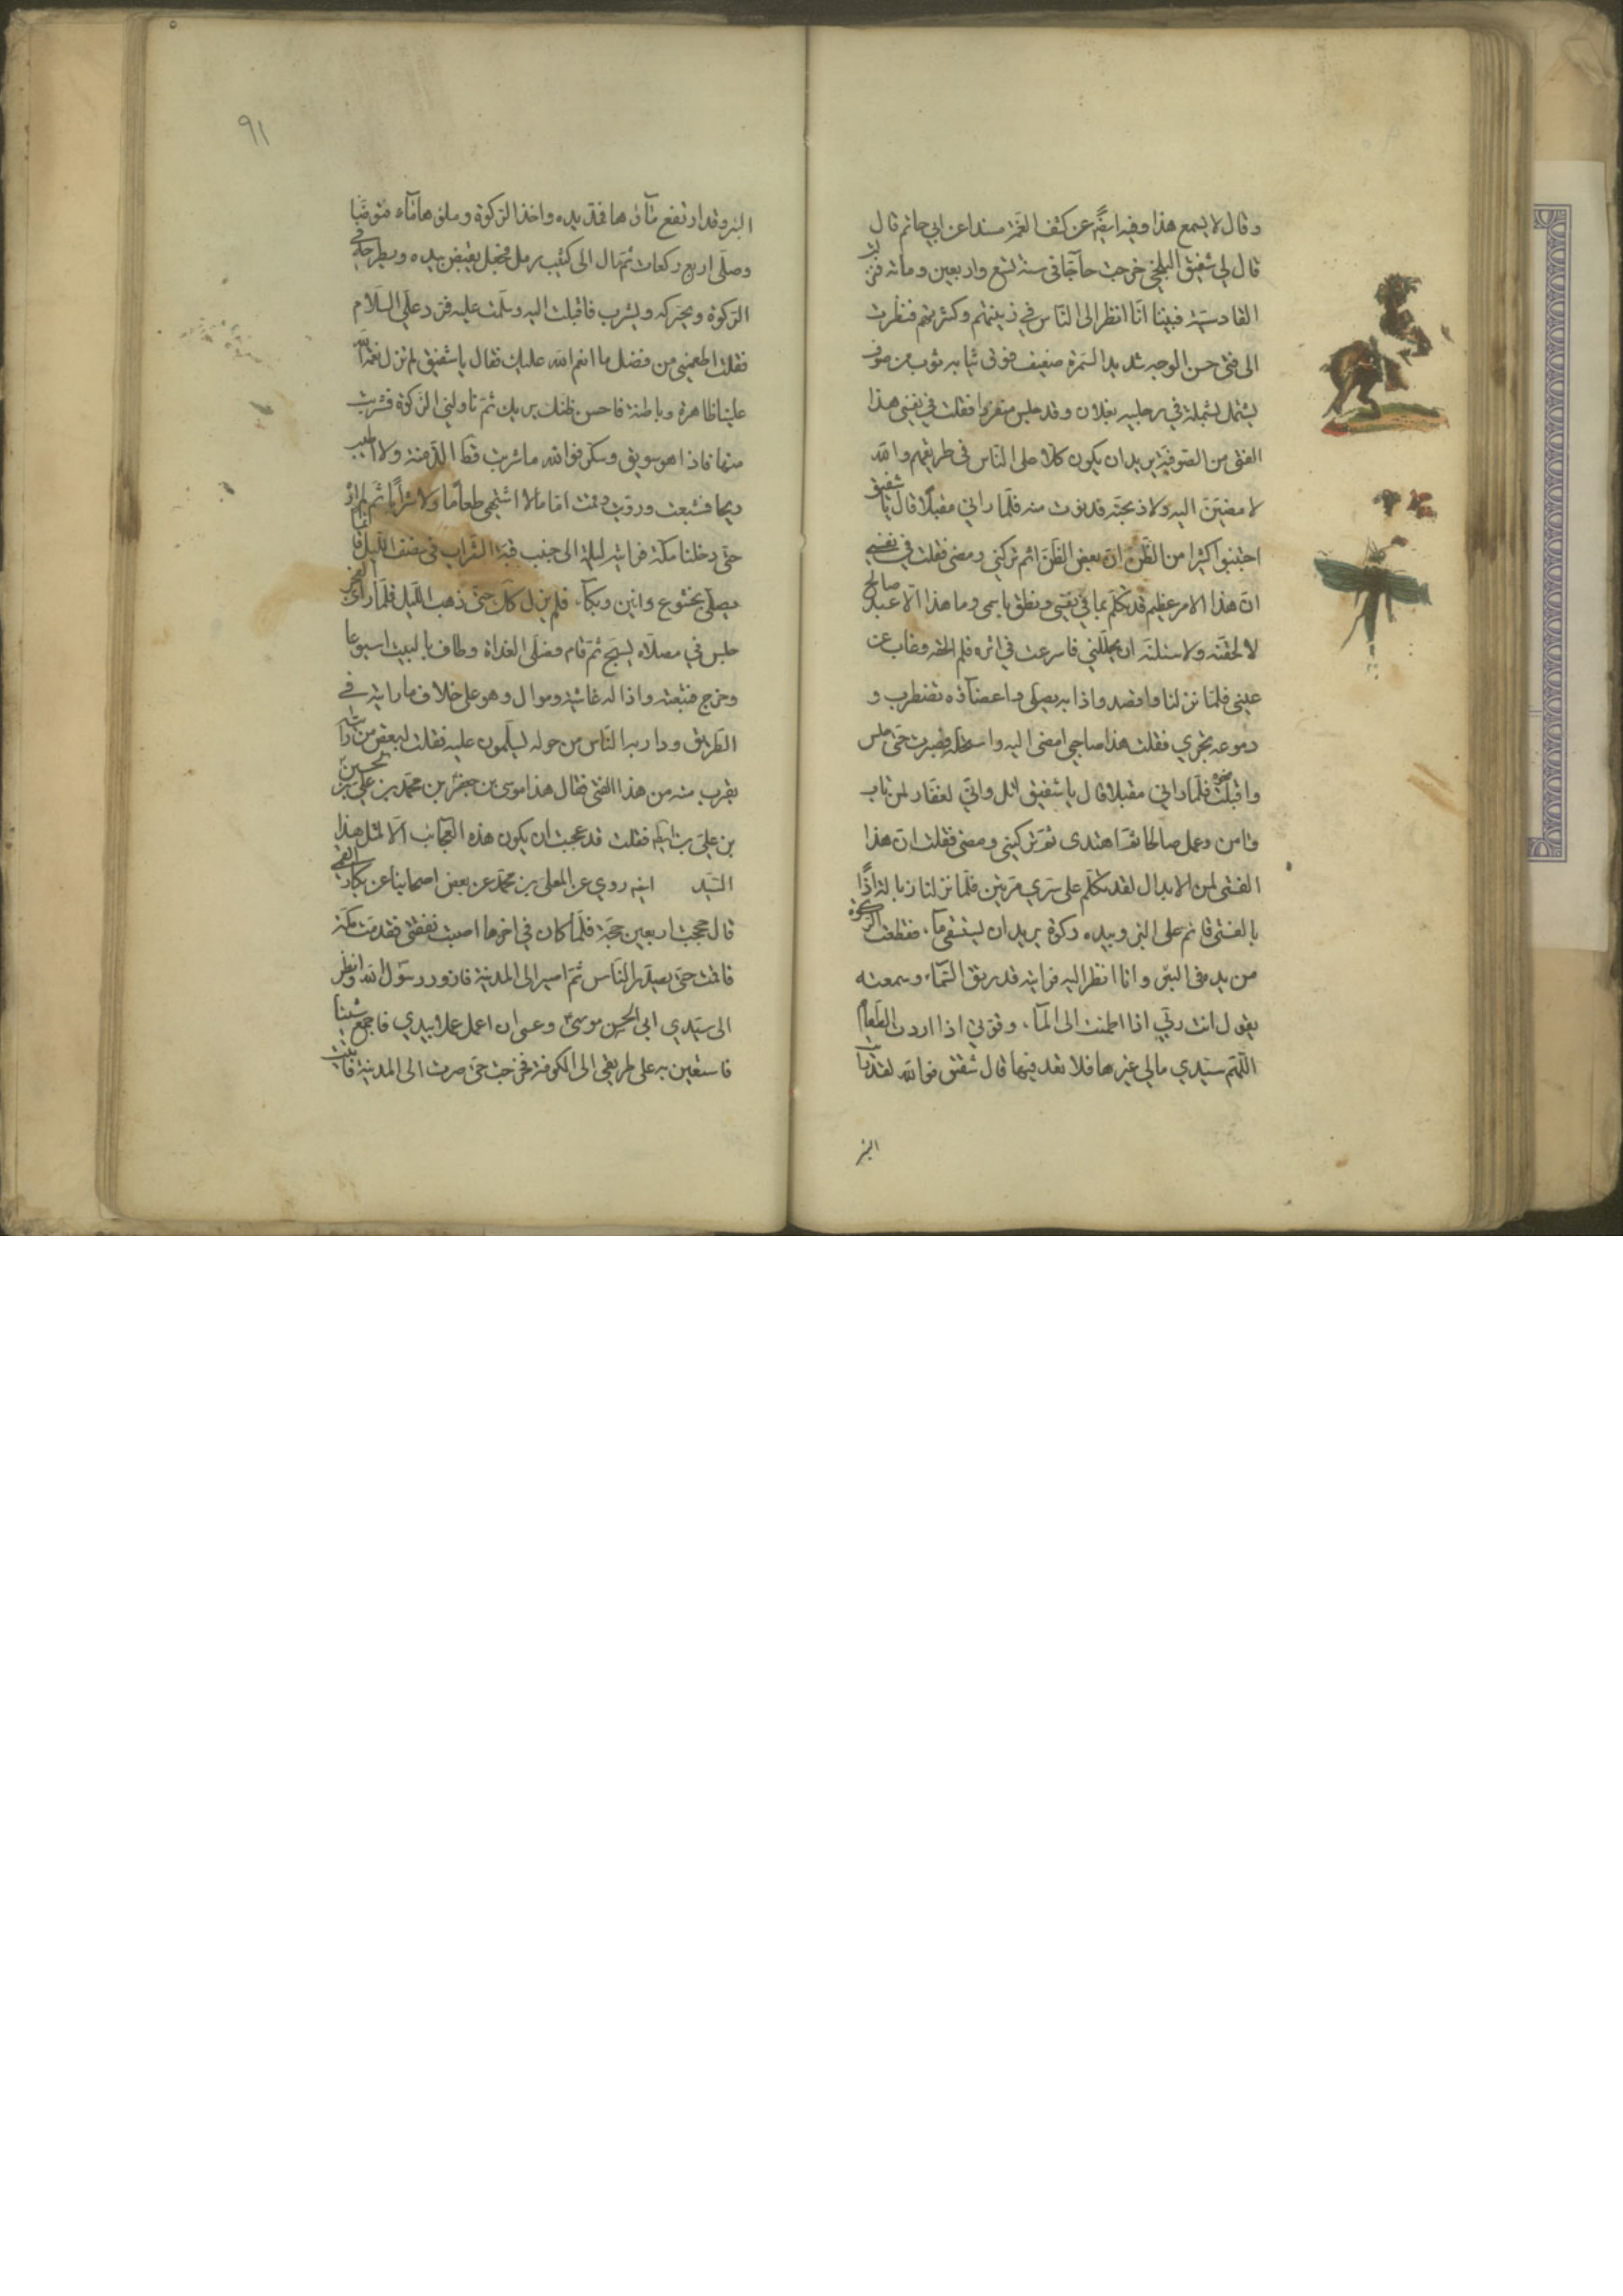 وقال لا يسمع هذا وفيه ايضًا عن كشف الغمّة مسندا عن ابي حاتم قال
قال لي شقيق البلخي خرجت حاجّا في سنة تسع واربعين ومائة فنزلت
القادسيّة فبينا انا انظر الى النّاس في زينتهم وكثرتهم فنظرت
الى فتى حسن الوجه شديد السّمرة ضعيف فوق ثيابه ثوب من صوف
يشتمل بشملة في رجليه نعلان وقد جلس منفردا فقلت في نفسي هذا
الفتى من الصّوفيّة يريد ان يكون كلّا على النّاس في طريقهم والله
لامضينّ اليه ولاوبخنّه فدنوت منه فلمّا راني مقبلا قال يا شقيق
اجتنبوا كثيرا من الظّن انّ بعض الظّن اثم ثم تركني ومضى فقلت في نفسي
انّ هذا الامر عظيم قد تكلّم بما في نفسي ونطق باسمي وما هذا الّا عبد صالح
لالحقنّه ولاسئلنّه ان يحلّلني فاسرعت في اثره فلم الحقه وغاب عن
عيني فلمّا نزلنا واقصه واذا به يصلّي واعضآؤه تضطرب و
دموعه تجري فقلت هذا صاحبي امضى اليه واستحلّه فصبرت حتّى جلس
واقبلت نحوه فلمّا راني مقبلا قال يا شقيق اتل وانّي لغفّار لمن تاب
وامن وعمل صالحا ثمّ اهتدى ثمّ تركني ومضى فقلت انّ هذا
الفتى لمن الابدال لقد تكلّم على سرّي مرّتين فلمّا نزلنا زبالة اذًا
بالفتى قائم على البئر وبيده ركوة يريد ان يستقي مآء فسقطت الركوة
من يده في البئر وانا انظر اليه فرايته قد رمق السّمآء وسمعته
يقول انت ربّي اذا اظمئت الى المآء وقوتي اذا اردت الطّعام
اللّهمّ سيّدي مالي غيرها فلا تعدمنيها قال شقيق فوالله لقد رايت
البئر
٩١
البئر وقد ارتفع مآؤها فمدّ يده واخذ الرّكوة وملؤها مآء فتوضّا
وصلّى اربع ركعات ثمّ مال الى كثيب رمل فجعل يقبض بيده ويطرحه في
الرّكوة ويحرّكه ويشرب فاقبلت اليه وسلّمت عليه فردّ علّي السّلام
فقلت اطعمني من فضل ما انعم الله عليك فقال يا شقيق لم تزل نعمة الله
علينا ظاهرة وباطنة فاحسن ظنّك بربك ثمّ ناولني الرّكوة فشربت
منها فاذا هو سويق وسكّر فوالله ما شربت قطّ الذّ منه ولا اطيب
ريحا فشبعت ورويت واقمت ايّاما لا اشتهي طعامًا ولا شرابًا ثم لم اره
حتّى دخلنا مكّة فرايته ليلة الى جنب قبّة الشّراب في نصف اللّيل قائما
يصلّي بخشوع وانين وبكآء فلم يزل كذلك حتّى ذهب اللّيل فلمّا رأى الفجر
جلس في مصلّاه يسبّح ثمّ قام فصلّى الغداة وطاف بالبيت اسبوعا
وخرج فتبعته واذا له غاشية وموال وهو على خلاف ما رايته في
الطّريق ودار به النّاس من حوله يسلّمون عليه فقلت لبعض من رايته
يقرب منه من هذا الفتى فقال هذا موسى بن جعفر بن محمّد بن علي بن حسين
بن علي بن ابيطالب فقلت قد عجبت ان يكون هذه العجائب الّا لمثل هذا
السّيّد ايضا روي عن المعلى بن محمّد عن بعض اصحابنا عن بكار القمي
قال حججت اربعين حجّة فلمّا كان في اخرها اصبت بنفقتي فقدمت مكّة
فاقمت حتّى يصدر النّاس ثمّ اصير الى المدينة فازور رسول الله وانظر
الى سيّدي ابي الحسن موسى وعسى ان اعمل عملا بيدي فاجمع شيئا
فاستعين به على طريقي الى الكوفة فخرجت حتّى صرت الى المدينة فاتيت